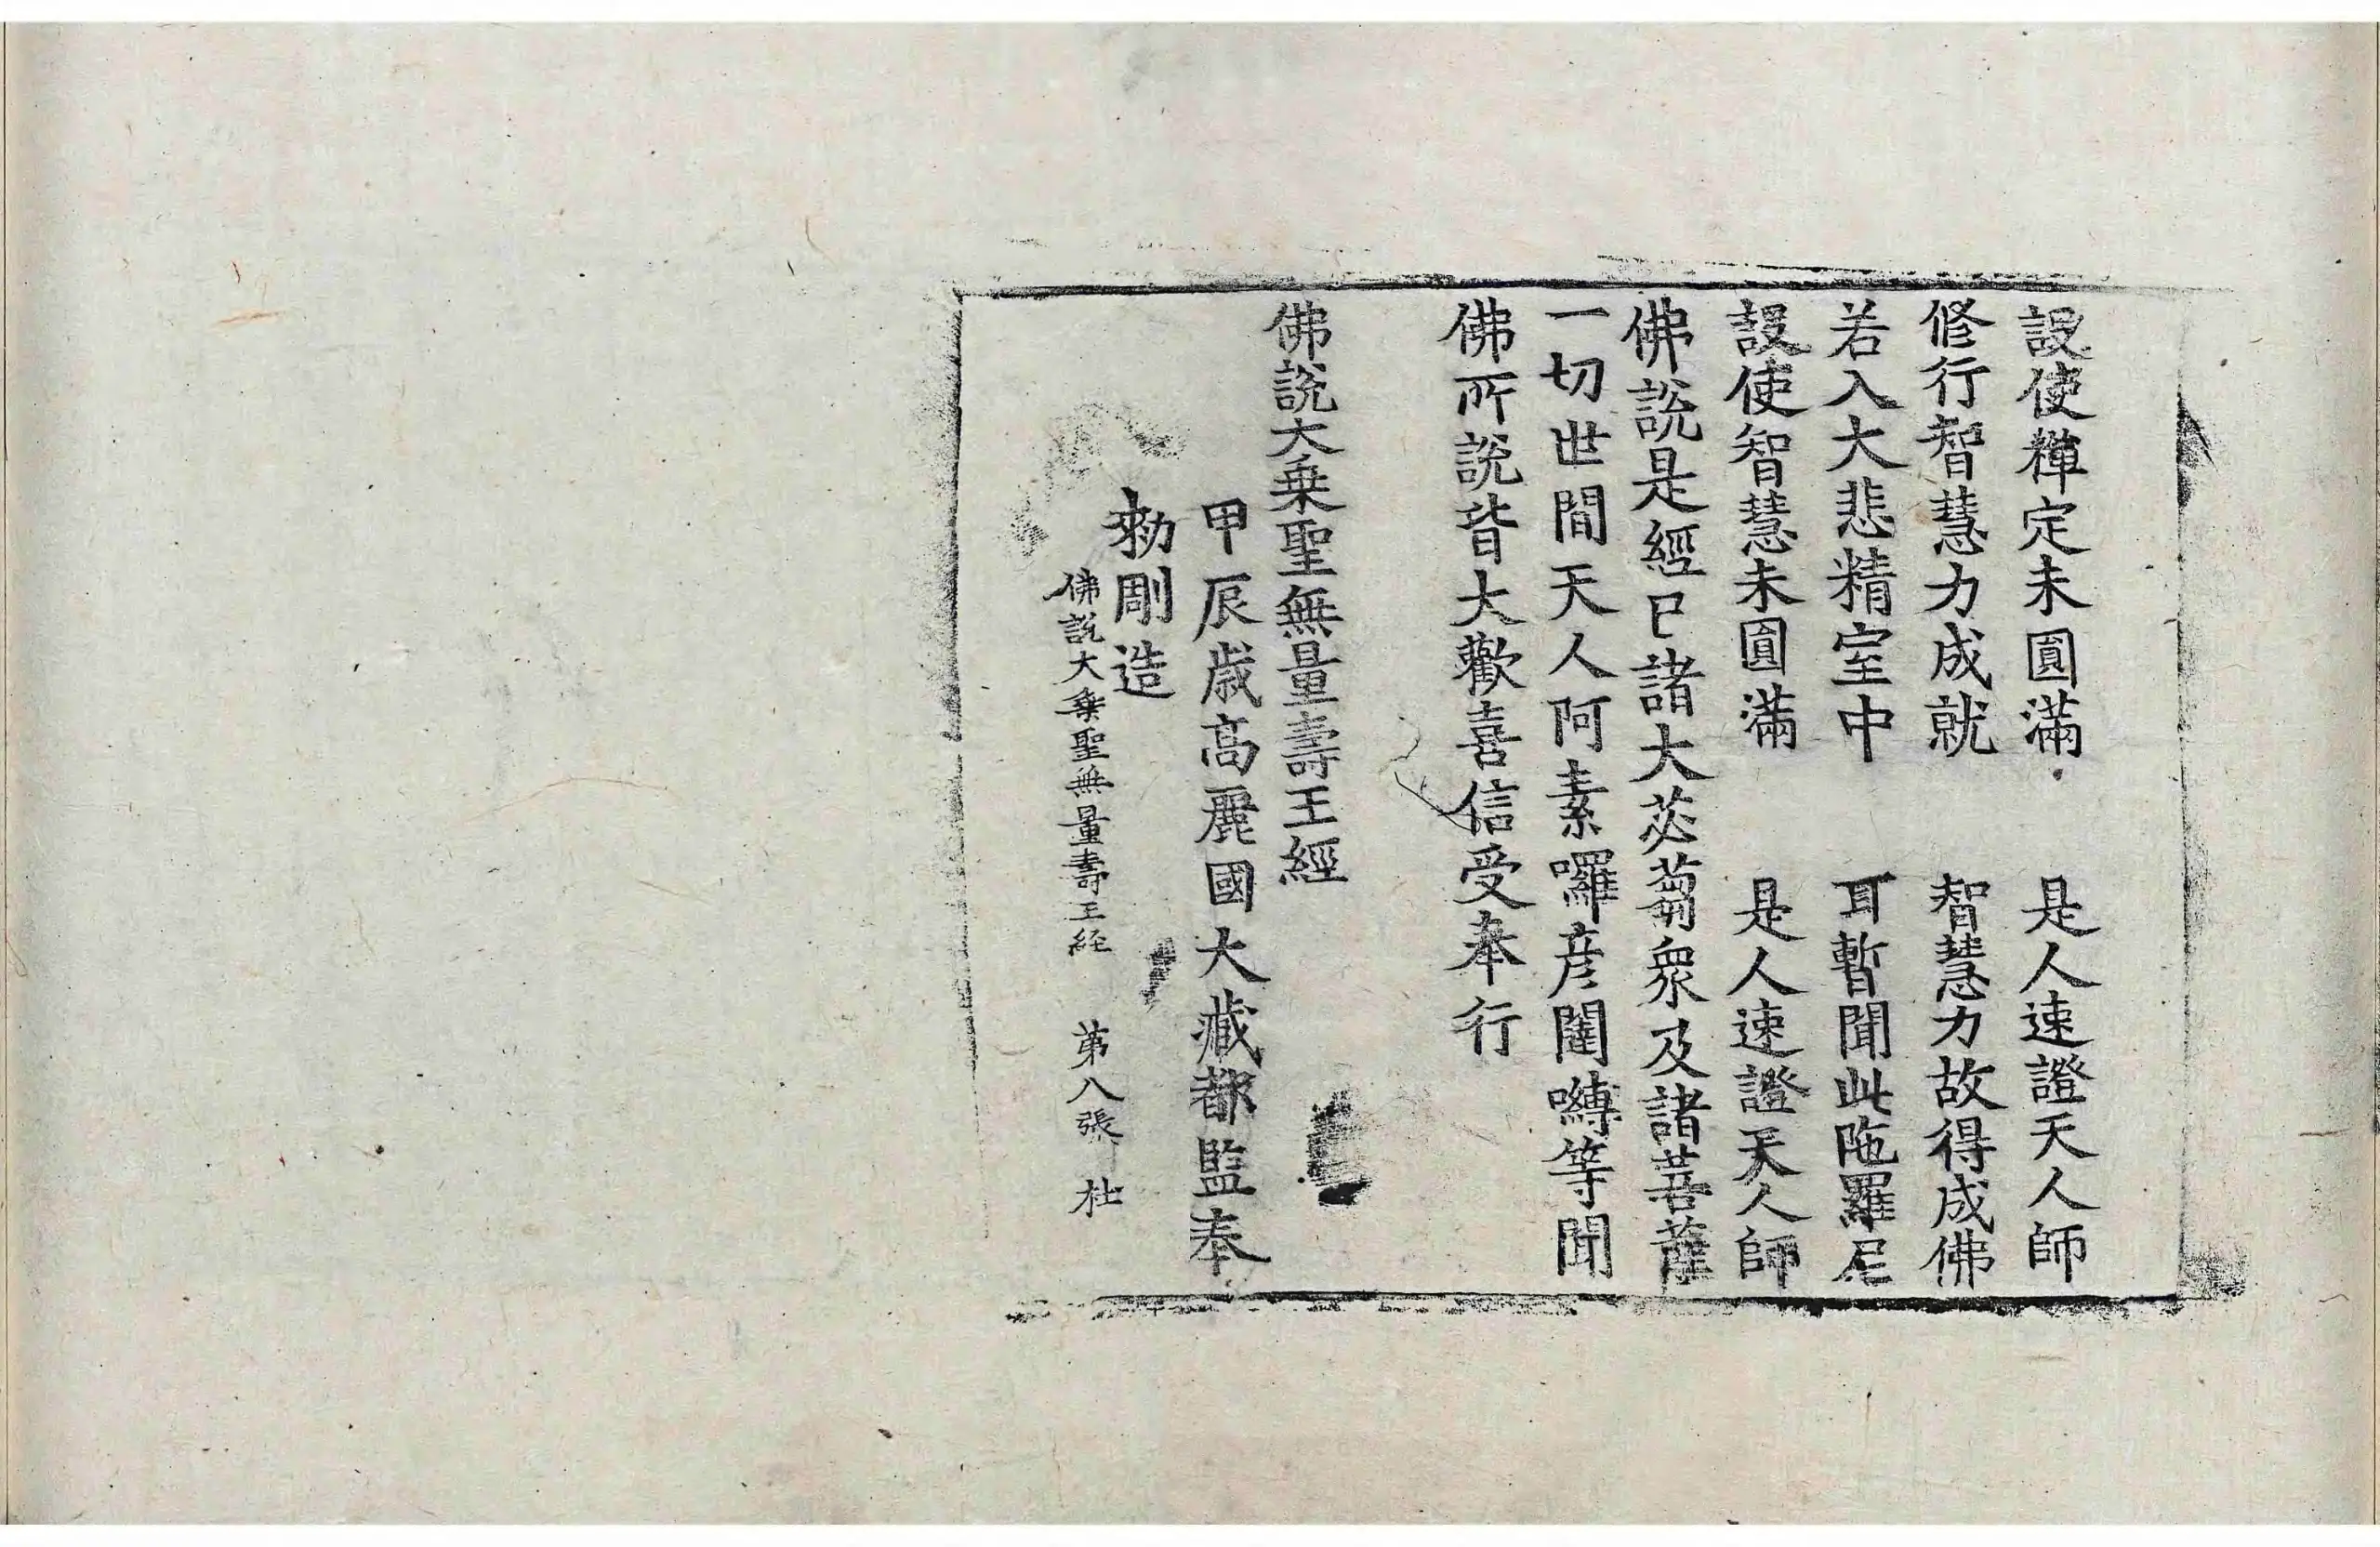 設使禪定未圓滿　是人速證天人師
修行智慧力成就　智慧力故得成佛
若入大悲精室中　耳暫聞此陁羅尼
設使智慧未圓滿　是人速證天人師
佛說是經已諸大苾蒭衆及諸菩薩
一切世間天人阿素囉彦闥嚩等聞
佛所說皆大歡喜信受奉行
佛說大乗聖無量壽王經
甲辰歲高麗國大藏都監奉
勑彫造
佛說大乗聖無量壽王經　第八張　杜